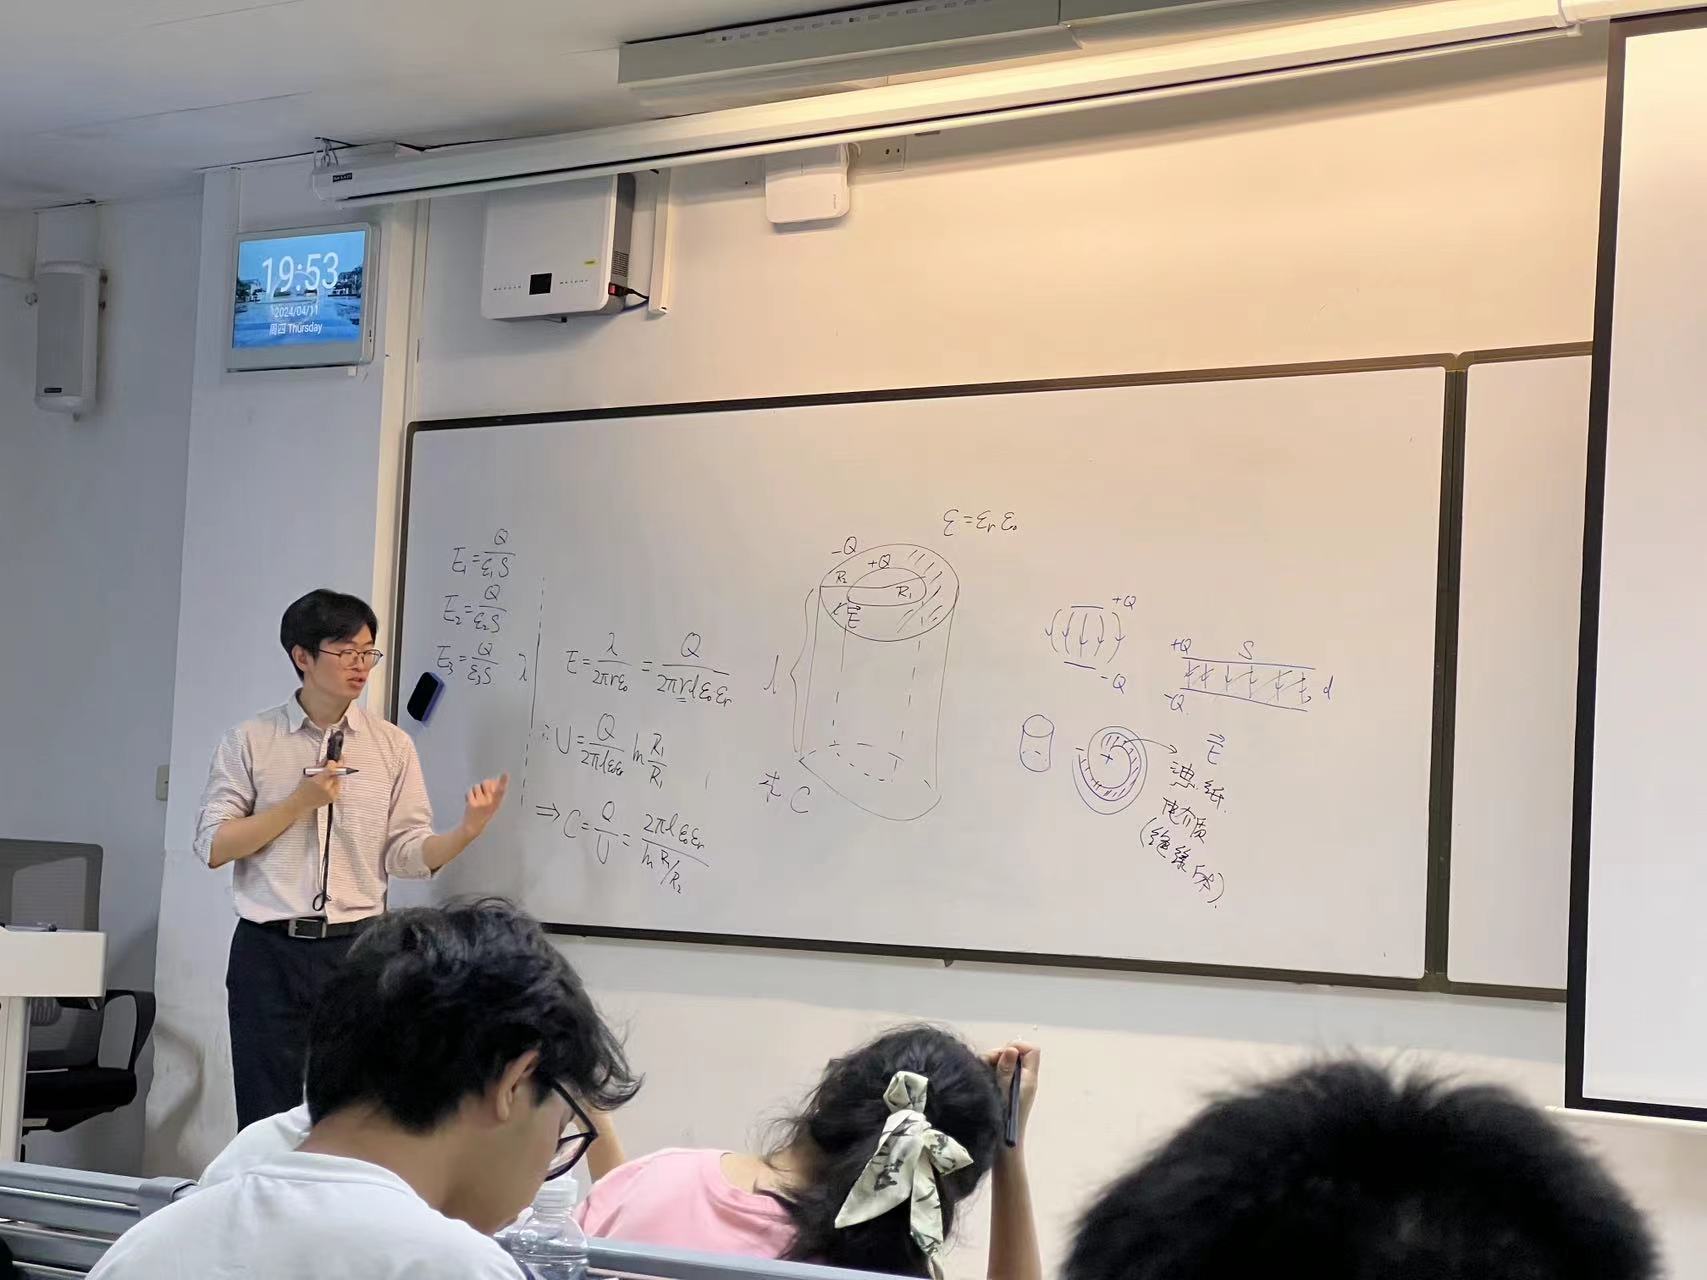 19:53
2024/04/11
周四 Thursday
E₁ = Q/ε₁S
E₂ = Q/ε₂S
E₃ = Q/ε₃S
λ
E = λ/2πrε₀ = Q/2πrlε₀εᵣ
∴ U = Q/2πlε₀εᵣ ln R₁/R₁
⇒ C = Q/U = 2πlε₀εᵣ/ln R₁/R₂
ε = εᵣε₀
-Q
+Q
R₂
R₁
r
E⃗
l
求 C
+Q
-Q
+Q
S
-Q
d
E⃗
-
+
油纸
电介质
(绝缘体)